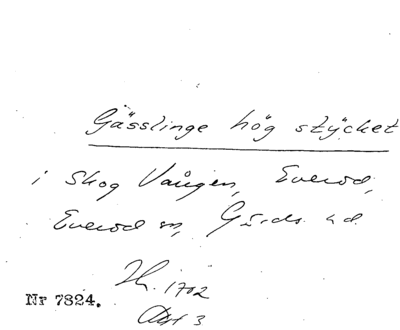 Gässlinge hög stycket
i Skog Vången, Everöd,
Everöd sn, Gärds hd
1702
Nr 7824.